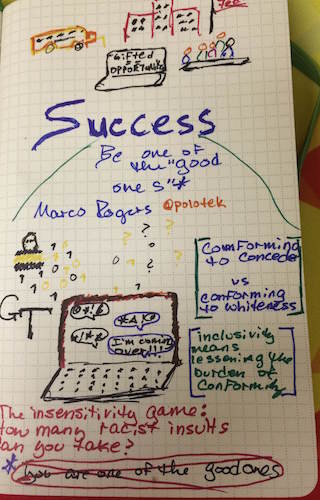 GIFTED
OPPORTUNITY
Success
Be one of
the "good
one s"*
Marco Rogers @polotek
? ?
?
?
GT
I'm coming
over!!!
Comforming
to concede
vs
conforming
to whiteness
inclusivity
means
lessening the
burden of
conformity
The insensitivity game:
How many racist insults
can you take?
* you are one of the good ones